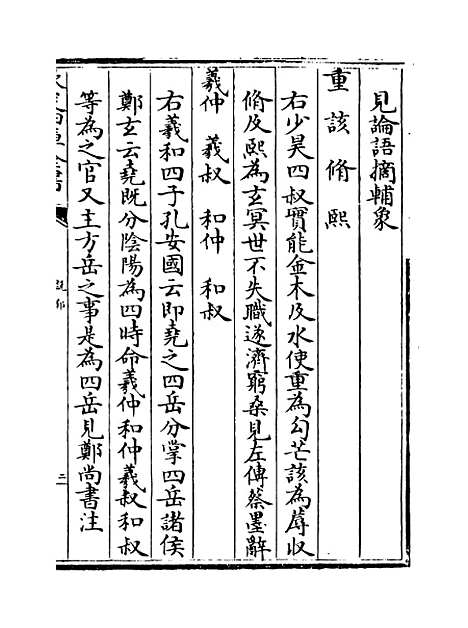 見論語摘輔象
重 該 脩 熙
右少昊四叔實能金木及水使重為勾芒該為蓐收
脩及熙為玄冥世不失職遂濟窮桑見左傳蔡墨辭
羲仲 羲叔 和仲 和叔
右羲和四子孔安國云即堯之四岳分掌四岳諸侯
鄭玄云堯既分陰陽為四時命羲仲和仲羲叔和叔
等為之官又主方岳之事是為四岳見鄭尚書注
說郛
三